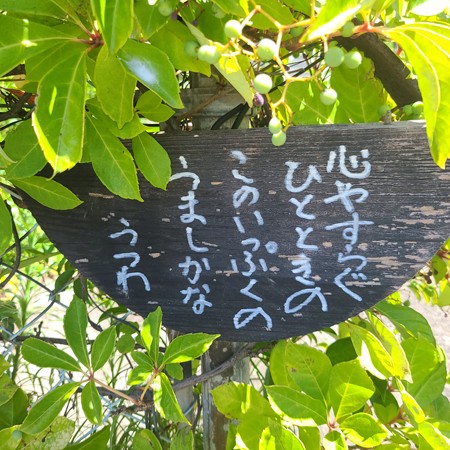 心やすらぐ
ひとときの
このいっぷくの
うましかな
うつわ